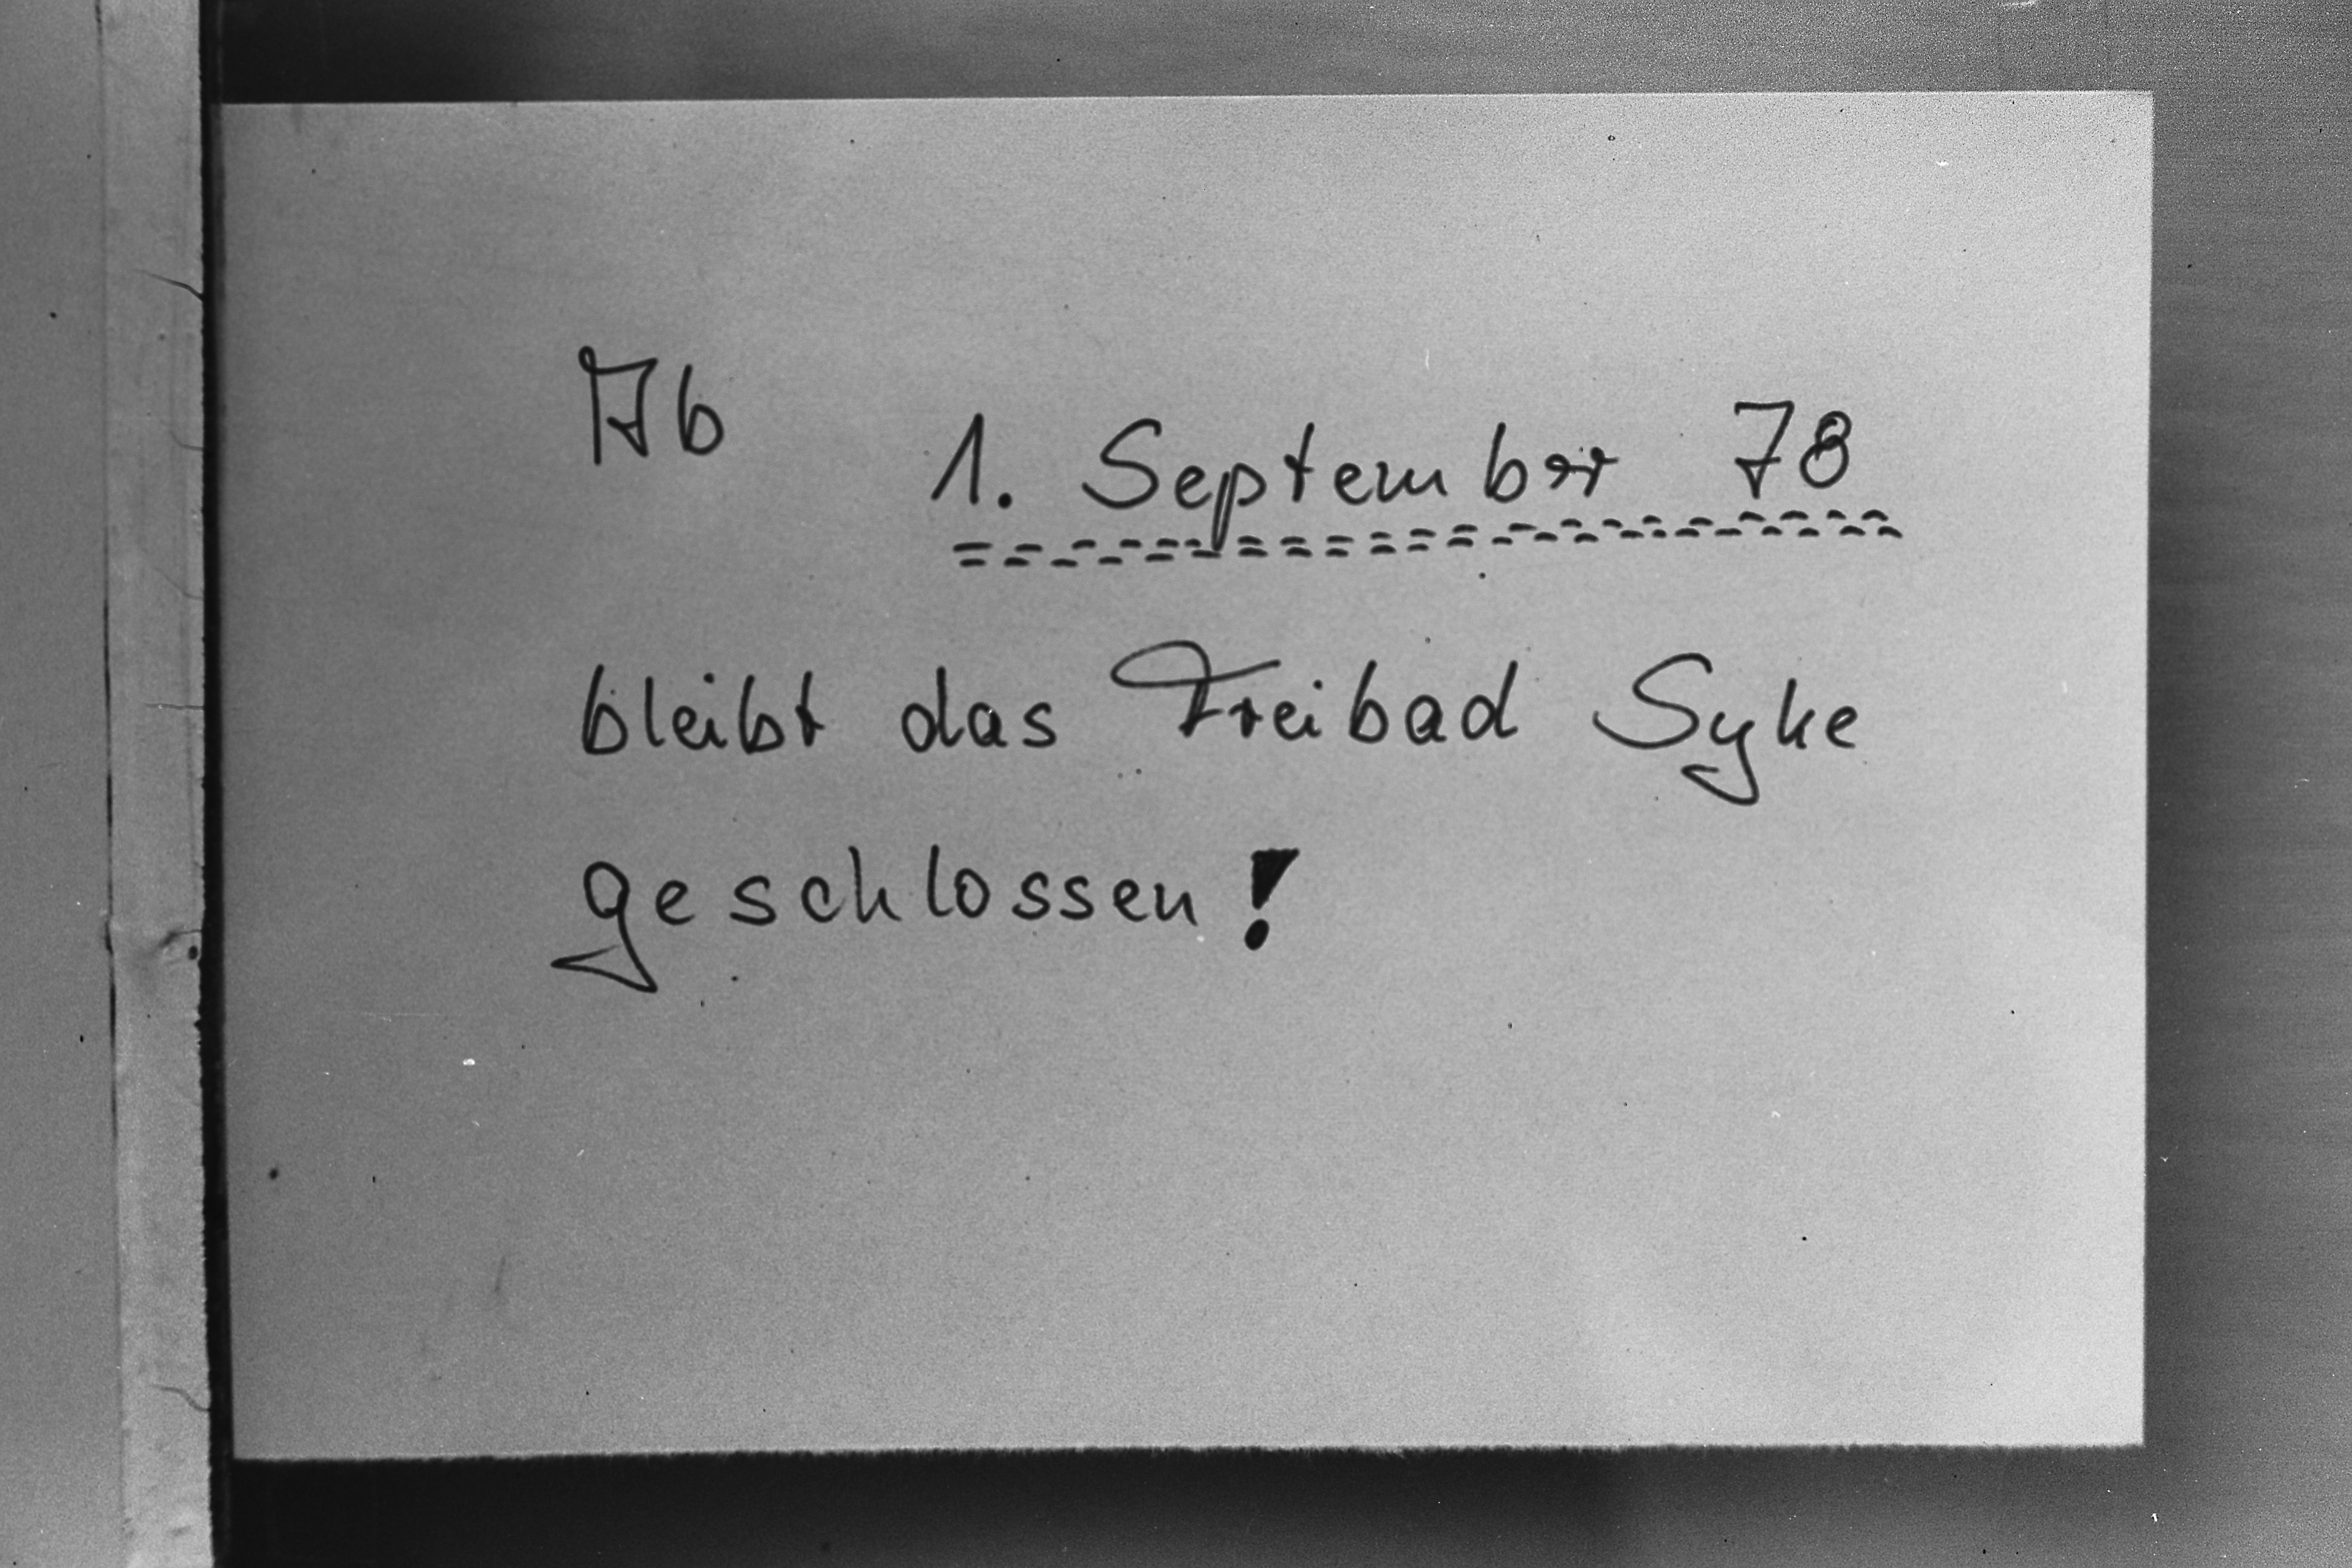 Ab
1. September 78
bleibt das Freibad Syke
geschlossen!